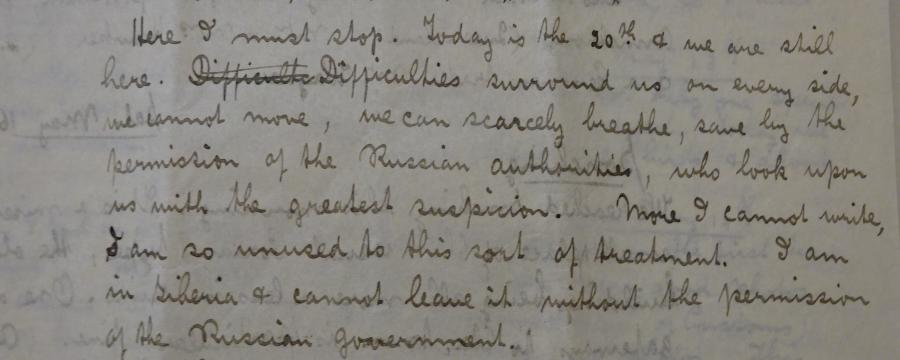 Here I must stop. Today is the 20th & we are still
here. Difficulte Difficulties surround us on every side,
we cannot move, we can scarcely breathe, save by the
permission of the Russian authorities, who look upon
us with the greatest suspicion. More I cannot write,
I am so unused to this sort of treatment. I am
in Siberia & cannot leave it without the permission
of the Russian government.